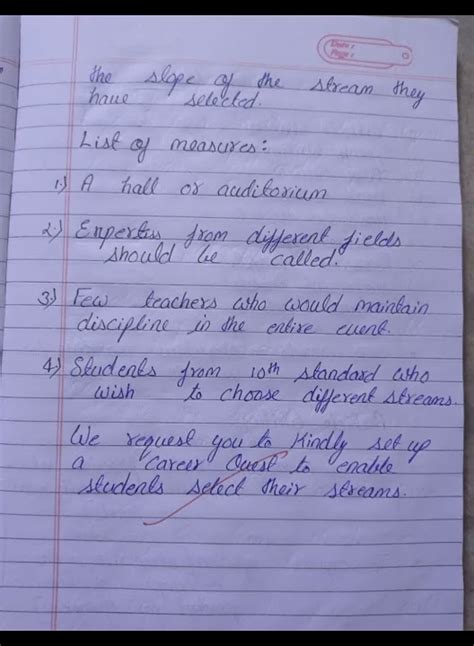 Date :
Page :
the slope of the stream they
have selected.
List of measures:
1.) A hall or auditorium
2.) Experties from different fields
should be called.
3.) Few teachers who would maintain
discipline in the entire event.
4.) Students from 10th standard who
wish to choose different streams.
We request you to Kindly set up
a career Quest to enable
students select their streams.